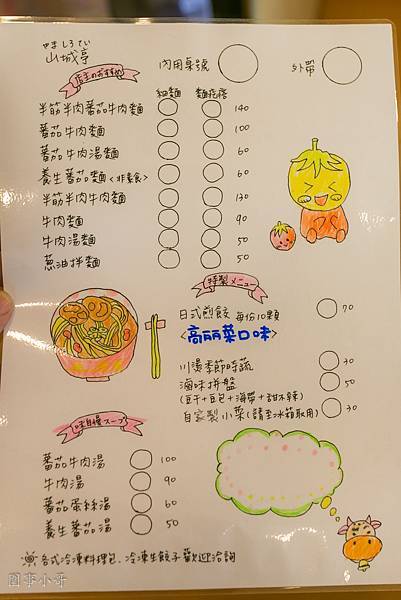 やましろてい
山城亭
內用桌號
外帶
店主のおすすめ
細麵 麵疙瘩
半筋半肉蕃茄牛肉麵 140
蕃茄牛肉麵 100
蕃茄牛肉湯麵 60
養生蕃茄麵<非素食> 60
半筋半肉牛肉麵 130
牛肉麵 90
牛肉湯麵 50
蔥油拌麵 50
特製メニュー
日式煎餃 每份10顆 70
<高麗菜口味>
川燙季節時蔬 30
滷味拼盤 50
(豆干+豆包+海帶+甜不辣)
自家製小菜(請至冰箱取用) 30
味自慢スープ
蕃茄牛肉湯 100
牛肉湯 90
蕃茄蛋絲湯 60
養生蕃茄湯 50
各式冷凍料理包、冷凍生餃子歡迎洽詢